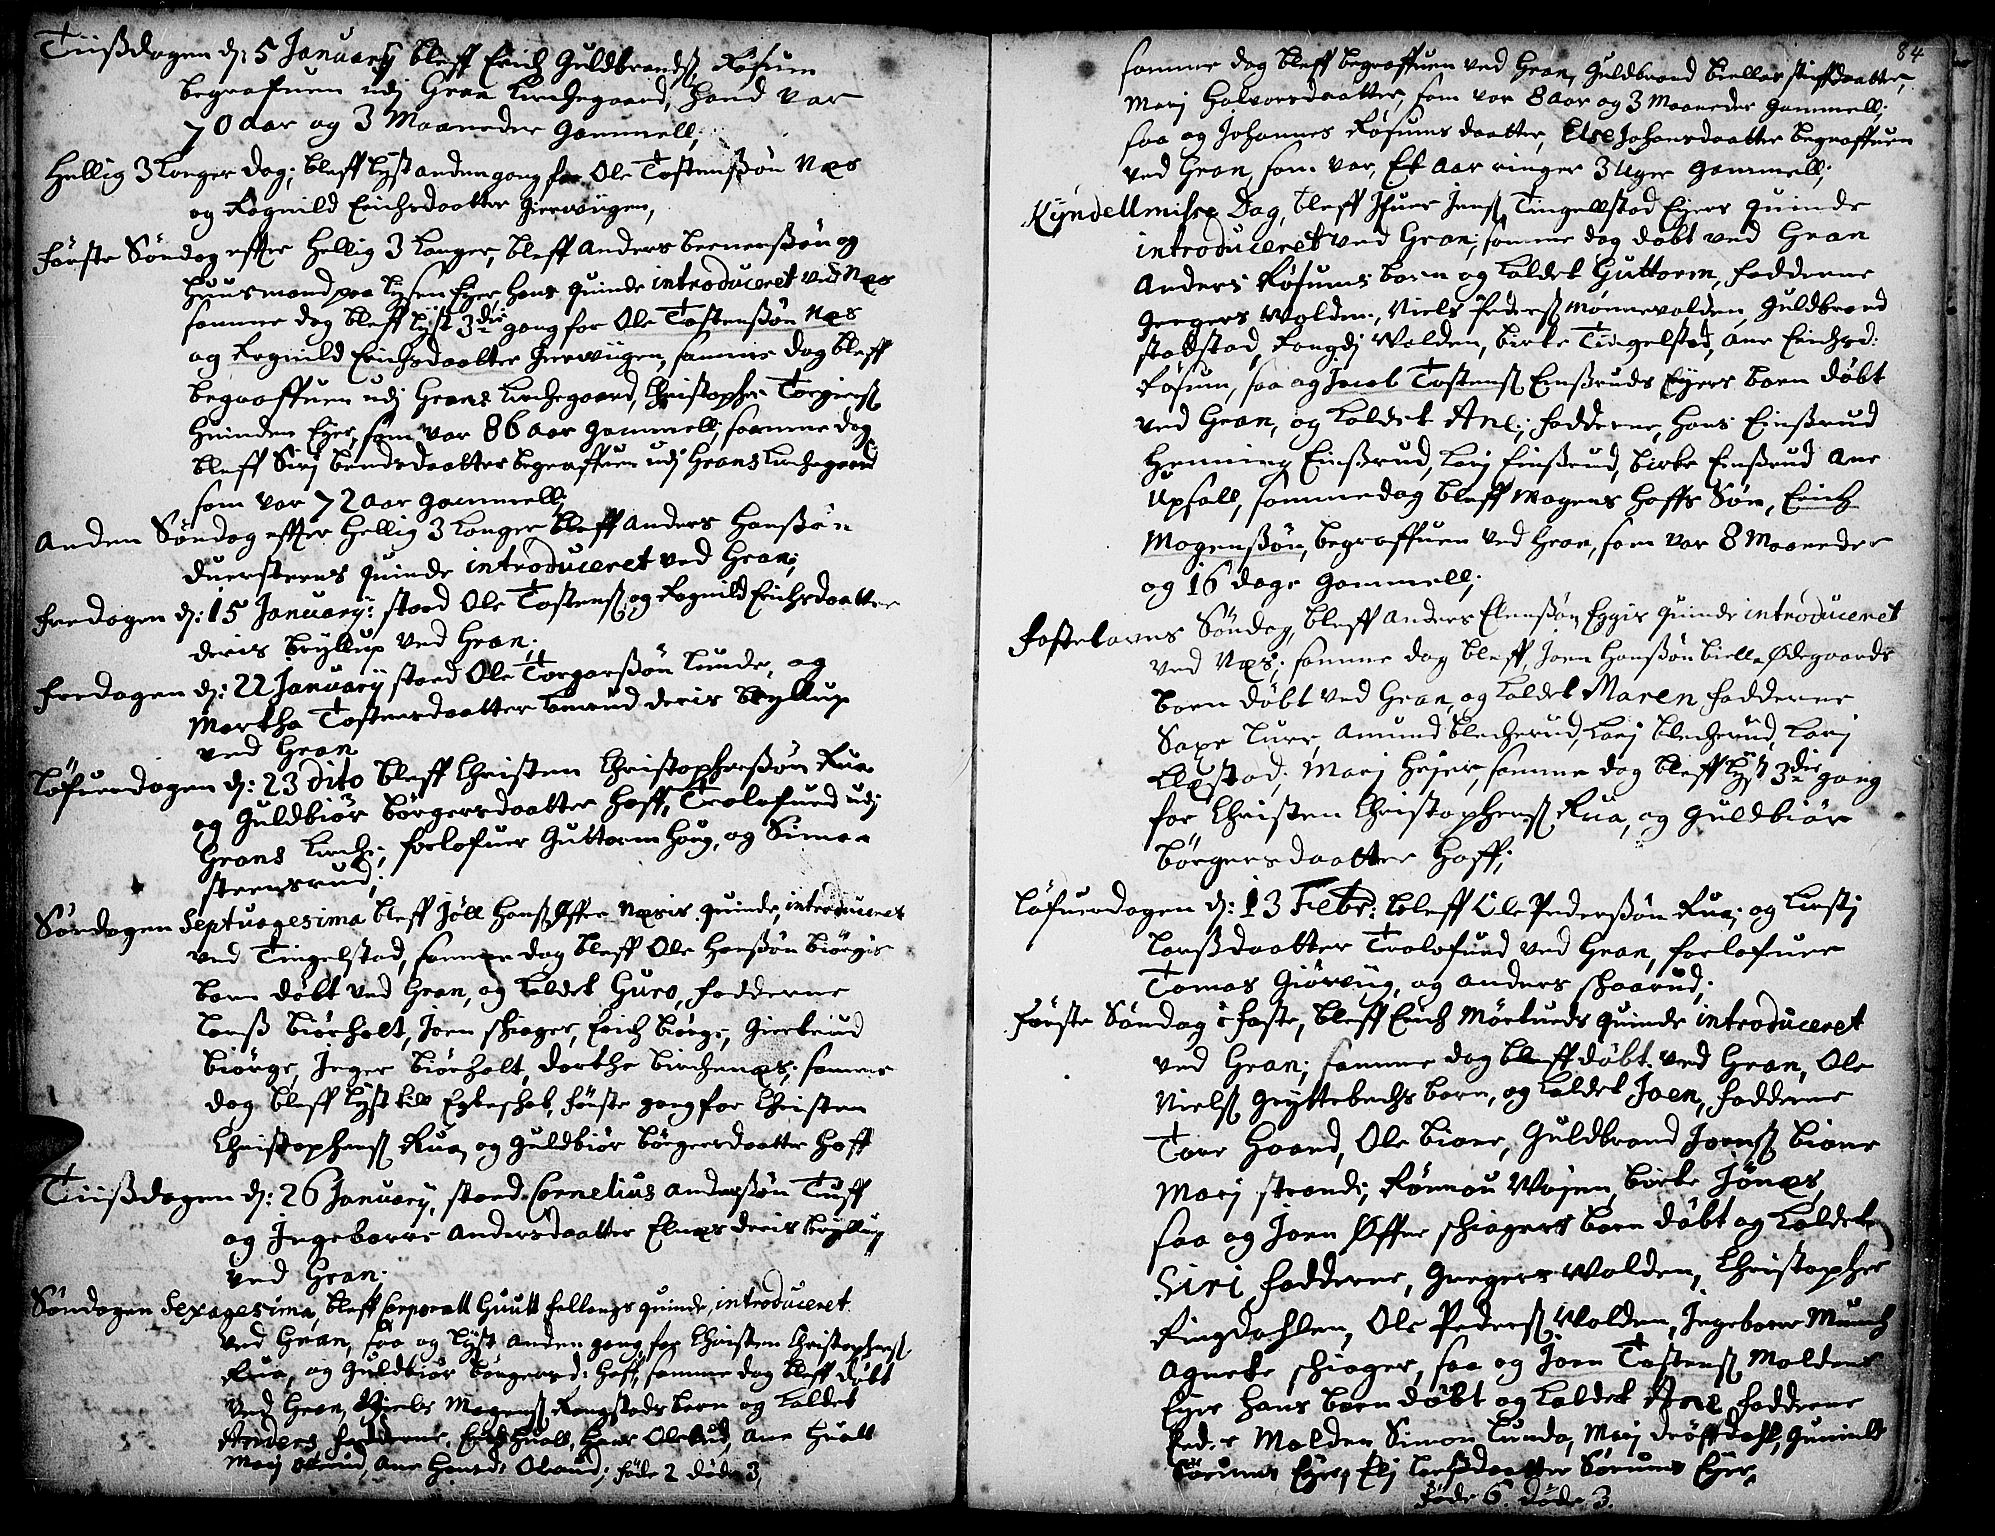 Tiißdagen d: 5 Januarij bleff Erich Guldbrandß Røsum
begrafuen udj Gran Kirchegaard, hand var
70 aar og 3 Maaneder gammell;
Hellig 3 Konger dag; bleff lyst anden gang for Ole Tostenßøn Næs
og Rognild Erichsdaatter Gierwiigen,
Første Søndag effter Hellig 3 Konger, bleff Anders
Huusmand paa Eyer, hans quinde introduceret ved Næs
samme dag bleff lyst 3die gang for Ole Tostenßøn Næs
og Rognild Erichsdaatter Gierwiigen, samme dag bleff
begraffuen udj Grans Kirchegaard, Christopher
Huinden Eyer, som var 86 aar gammell, samme dag
bleff Sirj begraffuen udj Grans Kirchegaard
som var 72 aar gammell;
Anden Søndag effter Hellig 3 Konger bleff Anders Hanßøn
quinde introduceret ved Gran;
Fredagen d: 15 Januarij: stoed Ole Tostenß og Rognild Erichsdaatter
deris bryllup ved Gran;
Fredagen d: 22 Januarij stoed Ole Torgarßøn Lunde, og
Martha Tostensdaatter deris bryllup
ved Gran
Løfuerdagen d: 23 dito bleff Christen Christopherßøn Rua
og Guldbiør Børgersdaatter Hoff, Trolofued udj
Grans Kirche, forlofuer Guttorm Houg, og Simen
steensrud;
Søndagen Septuagesima bleff Jöll Hanß Øffre Næsis quinde, introduceret
ved Tingelstad, samme dag bleff Ole Hanßøn Biørgis
barn døbt ved Gran, og kaldet Guro, fadderne
Larß Biørholt, Joen schiager, Erich Biørge,
Biørge, Inger Biørholt, Dorthe Birchenæs; samme
dag bleff lyst till Egteschab, første gang for Christen
Christopherß Rua, og Guldbiør Børgersdaatter Hoff
Tiißdagen d: 26 Januarij, stoed Cornelius Anderßøn Tuff
og Ingeborre Andersdaatter Elnæs deris bryllup
ved Gran;
Søndagen Sexagesima, bleff Corporall quinde, introduceret
ved Gran, saa og lyst anden gang for Christen Christopherß
Rua, og Guldbiør Børgersd: Hoff, samme dag bleff døbt
ved Gran, Niels Mogenß barn og kaldet
Anders, fadderne, Erich Huall, Hans Olerud, Ane Huall
Marj Olerud, Ane Hansd: Olerud; føde 2 døde 3,
84
samme dag bleff begraffuen ved Gran, Guldbrand Biellas stiffdaatter,
Marj Halvorsdaatter, som var 8 aar og 3 Maaneder gammell;
saa og Johannes Røsums daatter, Else Johansdaatter begraffuen
ved Gran, som var, Et aar ringer 3 Uger gammell;
Kyndellmisse Dag, bleff Ifuer Jenß Tingellstad Eyers quinde
introduceret ved Gran; samme dag døbt ved Gran
Anders Røsums barn og kaldet Guttorm, fadderne
Gregers Wolden, Niels Pederß Monnevolden, Guldbrand
stadstad, Rangdj Wolden, Birte Tingelstad, Ane Erichsd:
Røsum, saa og Jacob Tostenß Einßruds Eyers barn døbt
ved Gran, og kaldet Ane; fadderne, Hans Einßrud
Henning Einßrud, Karj Einßrud, Birte Einßrud Ane
Upsall, samme dag bleff Mogens Hoffs søn, Erich
Mogenßøn, begraffuen ved Gran, som var 8 Maaneder
og 16 dage gammell;
Fastelavns Søndag, bleff Anders Elenßøn Eggis quinde introduceret
ved Næs; samme dag bleff, Joen Hanßøn Bielle Ødegaards
barn døbt ved Gran, og kaldet Maren fadderne
Saxe Amund Blecherud, Karj Blecherud, Karj
Klæstad; Marj Heger, samme dag bleff lyst 3die gang
for Christen Christopherß Rua, og Guldbiør
Børgersdaatter Hoff;
Løfuerdagen d: 13 Febr: bleff Ole Pederßøn Rua; og Kirstj
Larßdaatter Trolofued ved Gran, forlofuer
Tomas Giörvig, og Anders schaarud;
Første Søndag i faste, bleff Erich Mörtueds quinde introduceret
ved Gran; samme dag bleff døbt ved Gran, Ole
Nielß Gryttebechs barn, og kaldet Joen, fadderne
Tore Haand, Ole Bione, Guldbrand Joenß Bione
Marj strande, Rönnou Wøyen, Birte Jönæs,
saa og Joen Øffre schiagers barn døbt og kaldet
Siri, fadderne, Gregers Wolden, Christopher
Ringdahlen, Ole Pederß Wolden, Ingeborre Munch
Agnete schiager, saa og Joen Tostenß Moldens
Eyer hans barn døbt og kaldet Ane fadderne
Peder Molden Simon Lunda, Marj dröffdahl, Gunild
Sørums Eyer, Elj Larßdaatter Sørums Eyer,
føde 6. døde 3.